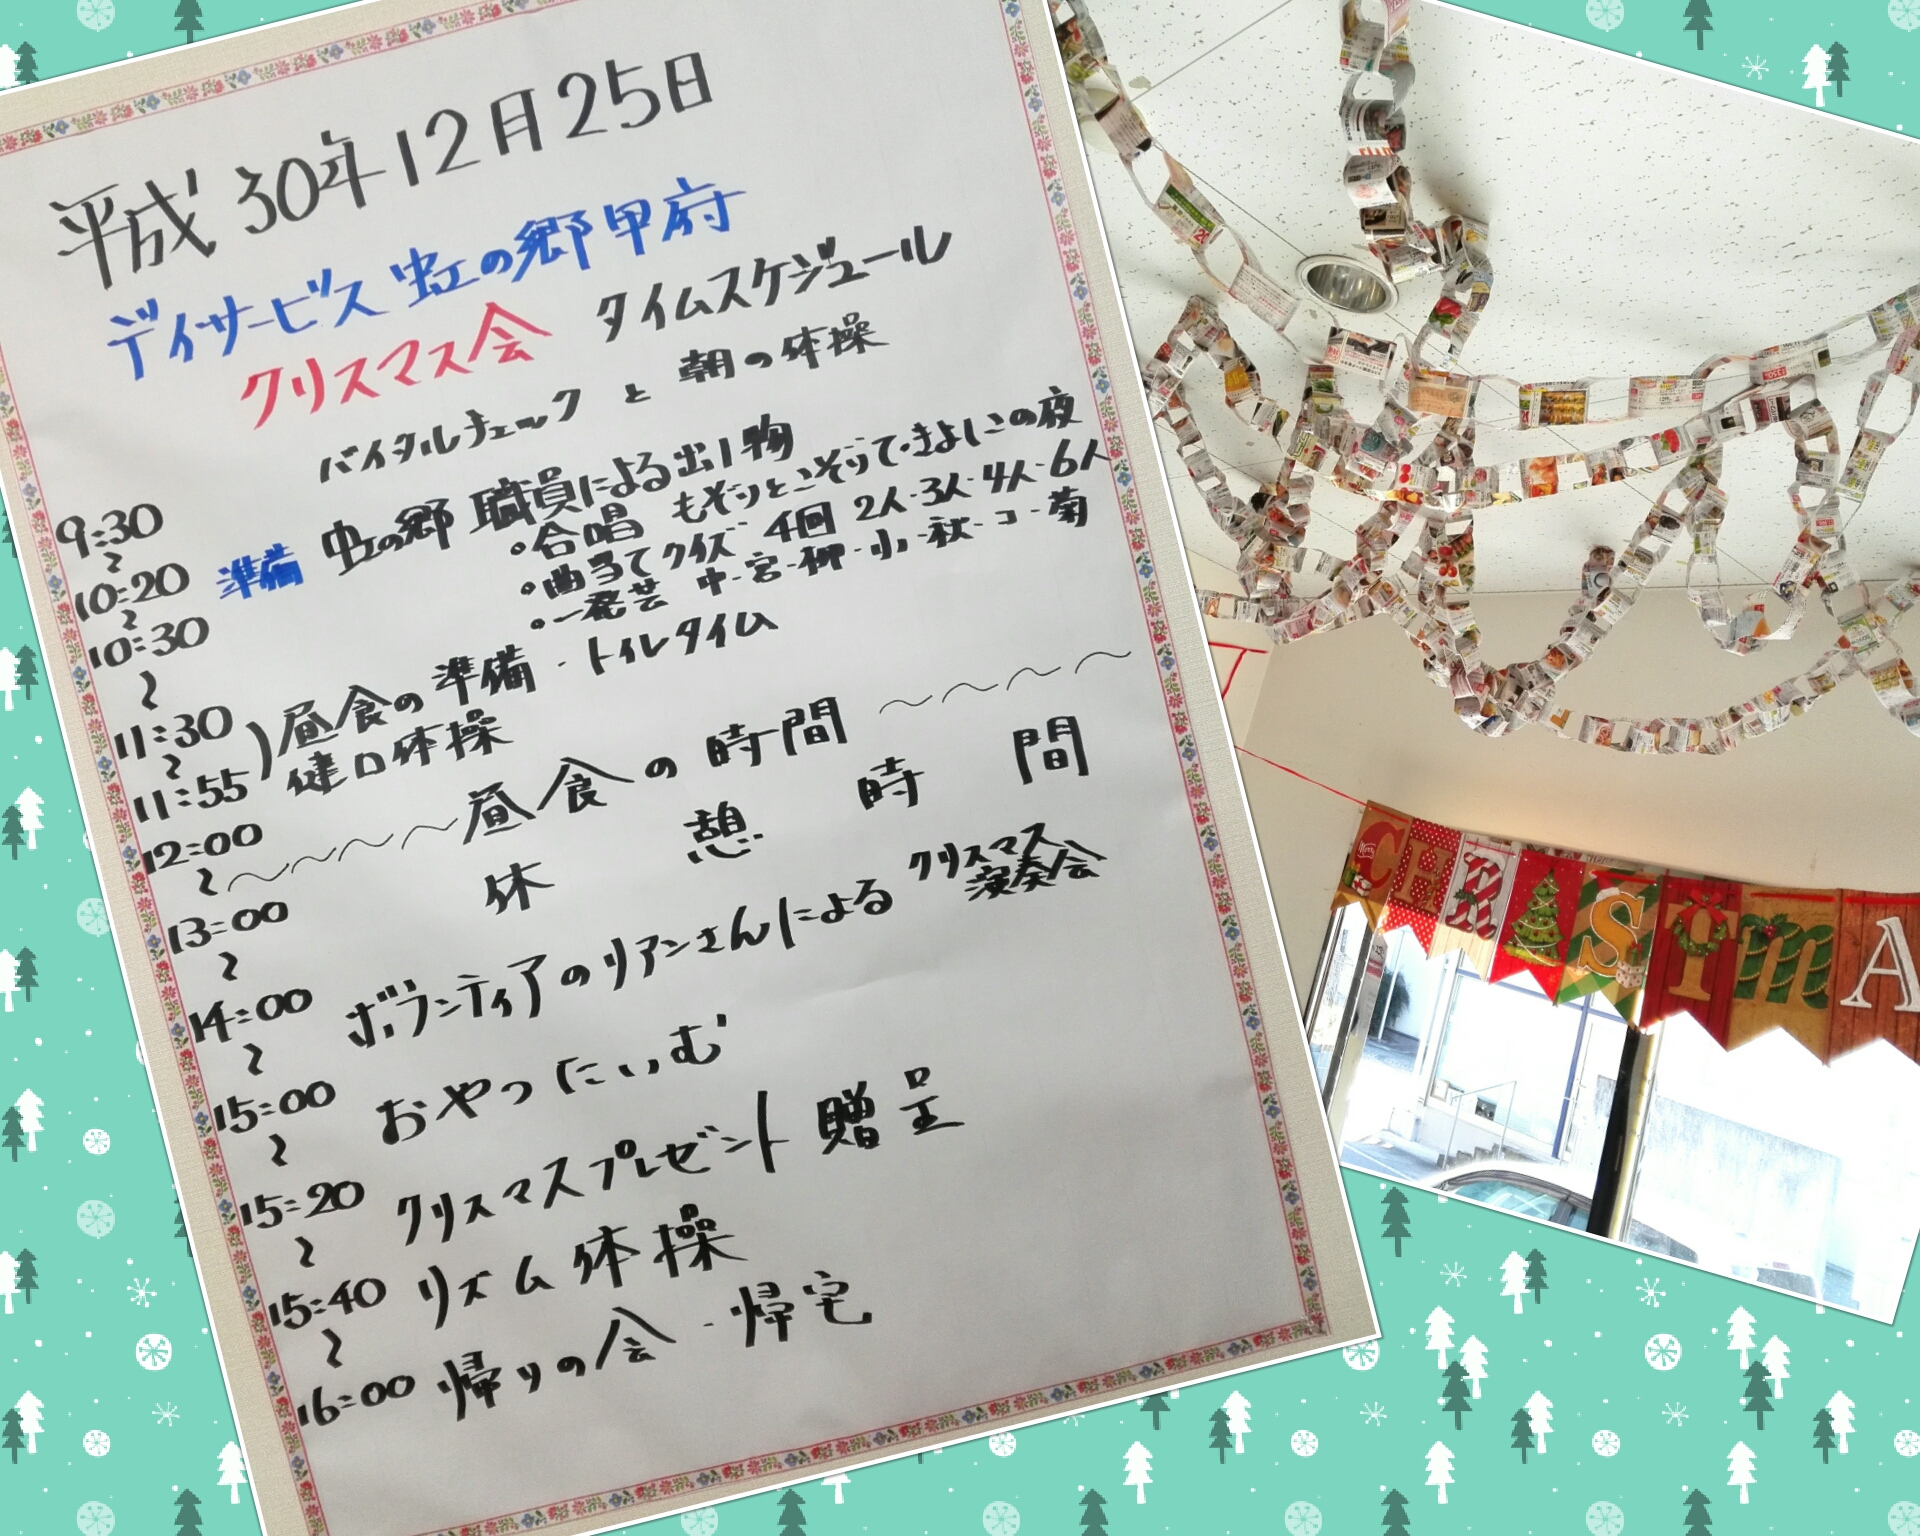 平成30年12月25日
デイサービス 虹の郷甲府
クリスマス会 タイムスケジュール
バイタルチェック と 朝の体操
9:30
〜
10:20 準備 虹の郷 職員による出し物
〜
10:30
。合唱 もぞりとこぞりて・きよしこの夜
。曲当てクイズ 4回 2人・3人・4人・6人
。一発芸 中・宮・柳・小・秋・コ・菊
〜
11:30 昼食の準備・トイレタイム
〜
11:55 健口体操
12:00 〜〜〜〜昼食の時間〜〜〜〜
〜
13:00 休憩時間
〜
14:00 ボランティアのリアンさんによる クリスマス演奏会
〜
15:00 おやつたいむ
〜
15:20 クリスマスプレゼント贈呈
〜
15:40 リズム体操
〜
16:00 帰りの会・帰宅
CHRISTMA